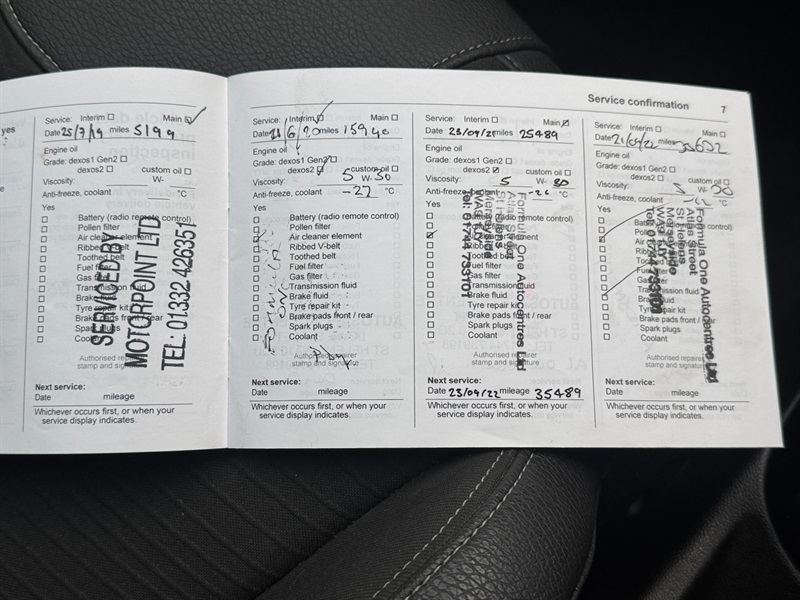 Service confirmation 7
yes
Service: Interim Main
Date 25/7/19 miles 5199
Engine oil
Grade: dexos1 Gen2
dexos2 custom oil
Viscosity: W-
Anti-freeze, coolant °C
Yes
Battery (radio remote control)
Pollen filter
Air cleaner element
Ribbed V-belt
Toothed belt
Fuel filter
Gas filter
Transmission fluid
Brake fluid
Tyre repair kit
Brake pads front / rear
Spark plugs
Coolant
SERVICED BY
MOTORPOINT LTD
TEL: 01332 426351
Authorised repairer
stamp and signature
Next service:
Date mileage
Whichever occurs first, or when your
service display indicates.
Service: Interim Main
Date 6/20 miles 15940
Engine oil
Grade: dexos1 Gen2
dexos2 custom oil
Viscosity: 5 W- 30
Anti-freeze, coolant -27 °C
Yes
Battery (radio remote control)
Pollen filter
Air cleaner element
Ribbed V-belt
Toothed belt
Fuel filter
Gas filter
Transmission fluid
Brake fluid
Tyre repair kit
Brake pads front / rear
Spark plugs
Coolant
Authorised repairer
stamp and signature
Next service:
Date mileage
Whichever occurs first, or when your
service display indicates.
Service: Interim Main
Date 23/04/21 miles 25489
Engine oil
Grade: dexos1 Gen2
dexos2 custom oil
Viscosity: 5 W- 30
Anti-freeze, coolant -26 °C
Yes
Battery (radio remote control)
Pollen filter
Air cleaner element
Ribbed V-belt
Toothed belt
Fuel filter
Gas filter
Transmission fluid
Brake fluid
Tyre repair kit
Brake pads front / rear
Spark plugs
Coolant
Formula One Autocentres Ltd
Atlas Street
St Helens
Merseyside
Tel: 01744 733101
Authorised repairer
stamp and signature
Next service:
Date 23/04/22 mileage 35489
Whichever occurs first, or when your
service display indicates.
Service: Interim Main
Date miles
Engine oil
Grade: dexos1 Gen2
dexos2 custom oil
Viscosity: 5 W- 30
Anti-freeze, coolant °C
Yes
Formula One Autocentres Ltd
Atlas Street
St Helens
Merseyside
Brake pads front / rear
Spark plugs
Coolant
Authorised repairer
stamp and signature
Next service:
Date mileage
Whichever occurs first, or when your
service display indicates.